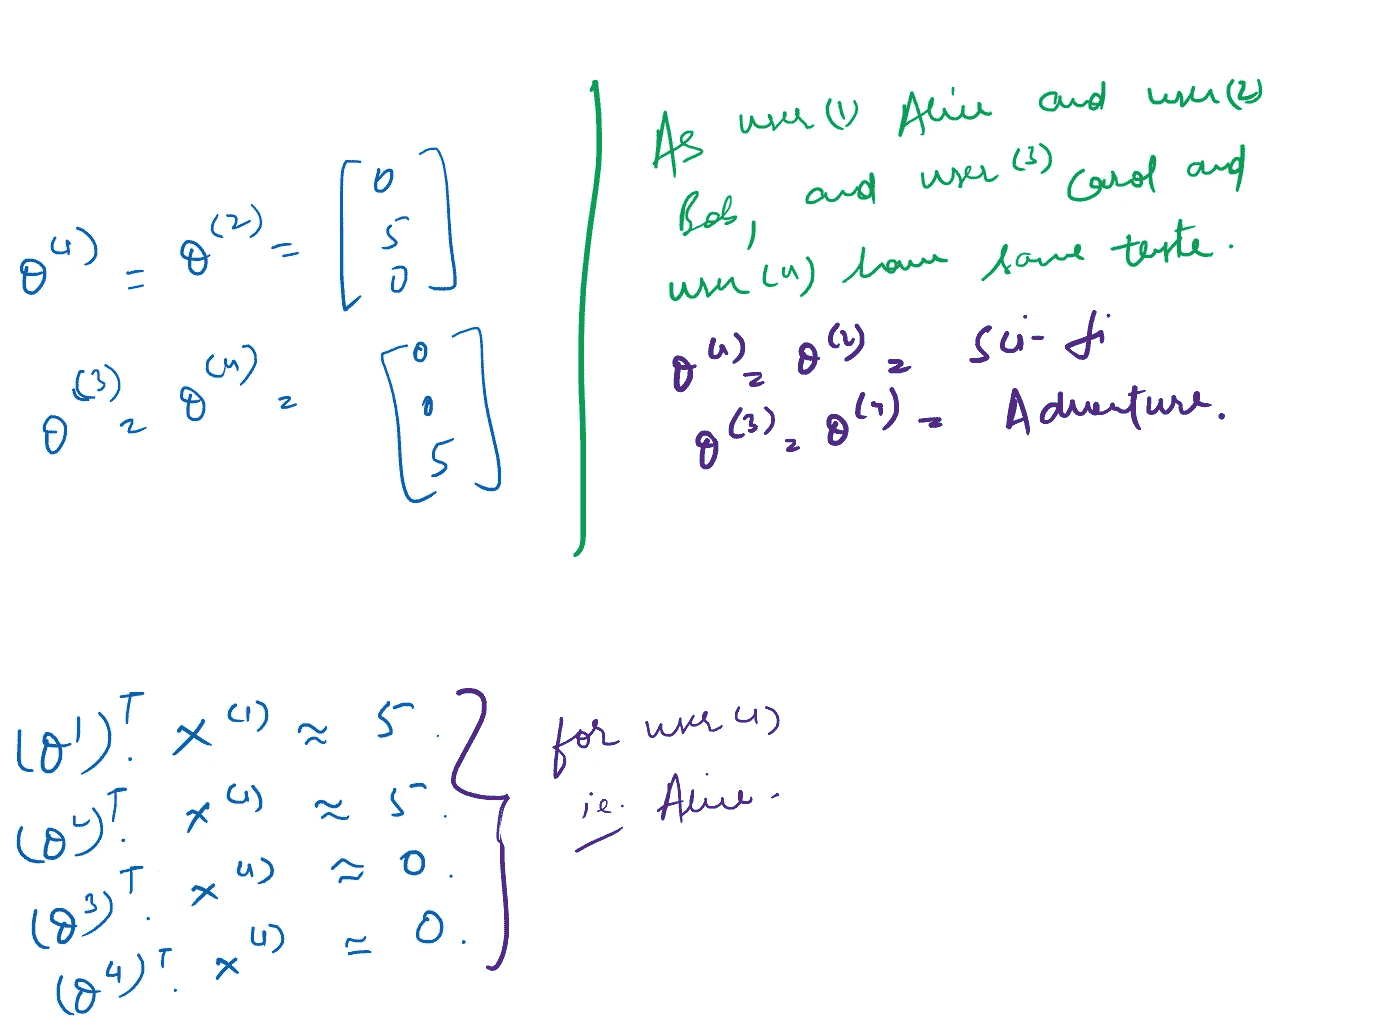 θ^(1) = θ^(2) = [0 5 0]
θ^(3) = θ^(4) = [0 0 5]
As user (1) Alice and user (2)
Bob, and user (3) Carol and
user (4) have same taste.
θ^(1) = θ^(2) = Sci-fi
θ^(3) = θ^(4) = Adventure.
(θ^1)^T. x^(1) ≈ 5.
(θ^2)^T. x^(1) ≈ 5.
(θ^3)^T. x^(1) ≈ 0.
(θ^4)^T. x^(1) ≃ 0.
for user (1)
ie. Alice.